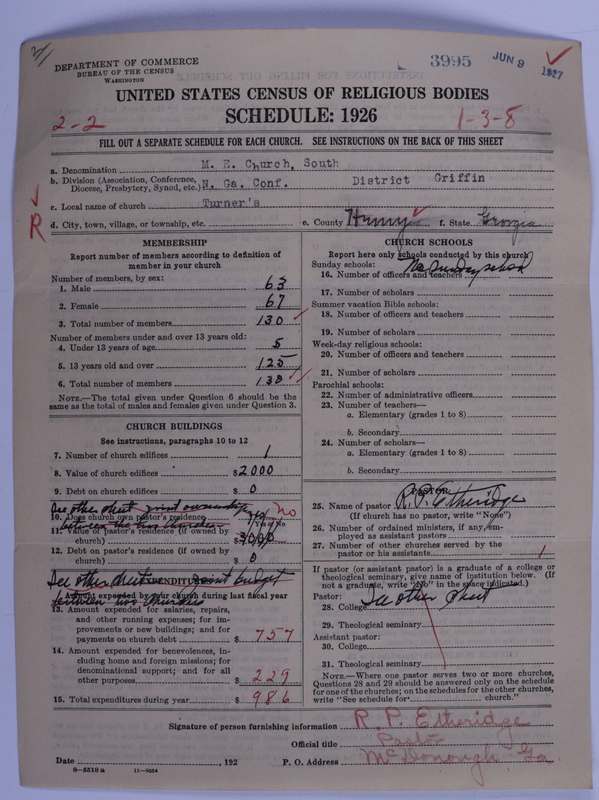 2/
DEPARTMENT OF COMMERCE
BUREAU OF THE CENSUS
WASHINGTON
3995 JUN 9 1927
UNITED STATES CENSUS OF RELIGIOUS BODIES
2-2 SCHEDULE: 1926 1-3-8
FILL OUT A SEPARATE SCHEDULE FOR EACH CHURCH. SEE INSTRUCTIONS ON THE BACK OF THIS SHEET
a. Denomination M. E. Church, South
b. Division (Association, Conference, Diocese, Presbytery, Synod, etc.) N. Ga. Conf. District Griffin
c. Local name of church Turner's
R
d. City, town, village, or township, etc. e. County Henry f. State Georgia
MEMBERSHIP
Report number of members according to definition of
member in your church
Number of members, by sex:
1. Male 63
2. Female 67
3. Total number of members 130
Number of members under and over 13 years old:
4. Under 13 years of age 5
5. 13 years old and over 125
6. Total number of members 130
NOTE.—The total given under Question 6 should be
same as the total of males and females given under Question 3.
CHURCH BUILDINGS
See instructions, paragraphs 10 to 12
7. Number of church edifices 1
8. Value of church edifices $2000
9. Debt on church edifices $ 0
See other sheet joint ownership
10. Does church own pastor's residence no
between two churches
11. Value of pastor's residence (if owned by
church) $
12. Debt on pastor's residence (if owned by
church) $ 0
See other sheet joint budget
EXPENDITURES
Amount expended by your church during last fiscal year
between two churches
13. Amount expended for salaries, repairs,
and other running expenses; for im-
provements or new buildings; and for
payments on church debt $ 757
14. Amount expended for benevolences, in-
cluding home and foreign missions; for
denominational support; and for all
other purposes $ 229
15. Total expenditures during year $ 986
CHURCH SCHOOLS
Report here only schools conducted by this church
Sunday schools: No Sunday school
16. Number of officers and teachers
17. Number of scholars
Summer vacation Bible schools:
18. Number of officers and teachers
19. Number of scholars
Week-day religious schools:
20. Number of officers and teachers
21. Number of scholars
Parochial schools:
22. Number of administrative officers
23. Number of teachers—
a. Elementary (grades 1 to 8)
b. Secondary
24. Number of scholars—
a. Elementary (grades 1 to 8)
b. Secondary
PASTOR
25. Name of pastor R. P. Etheridge
(If church has no pastor, write "None")
26. Number of ordained ministers, if any, em-
ployed as assistant pastors
27. Number of other churches served by the
pastor or his assistants 1
If pastor (or assistant pastor) is a graduate of a college or
theological seminary, give name of institution below. (If
not a graduate, write "No" in the place indicated.)
Pastor: See other sheet
28. College
29. Theological seminary
Assistant pastor:
30. College
31. Theological seminary
NOTE.—Where one pastor serves two or more churches,
Questions 28 and 29 should be answered only on the schedule
for one of the churches; on the schedules for the other churches,
write "See schedule for church."
Signature of person furnishing information R. P. Etheridge
Official title Pastor
Date , 192 P. O. Address McDonough Ga
8-5518 a 11-9684